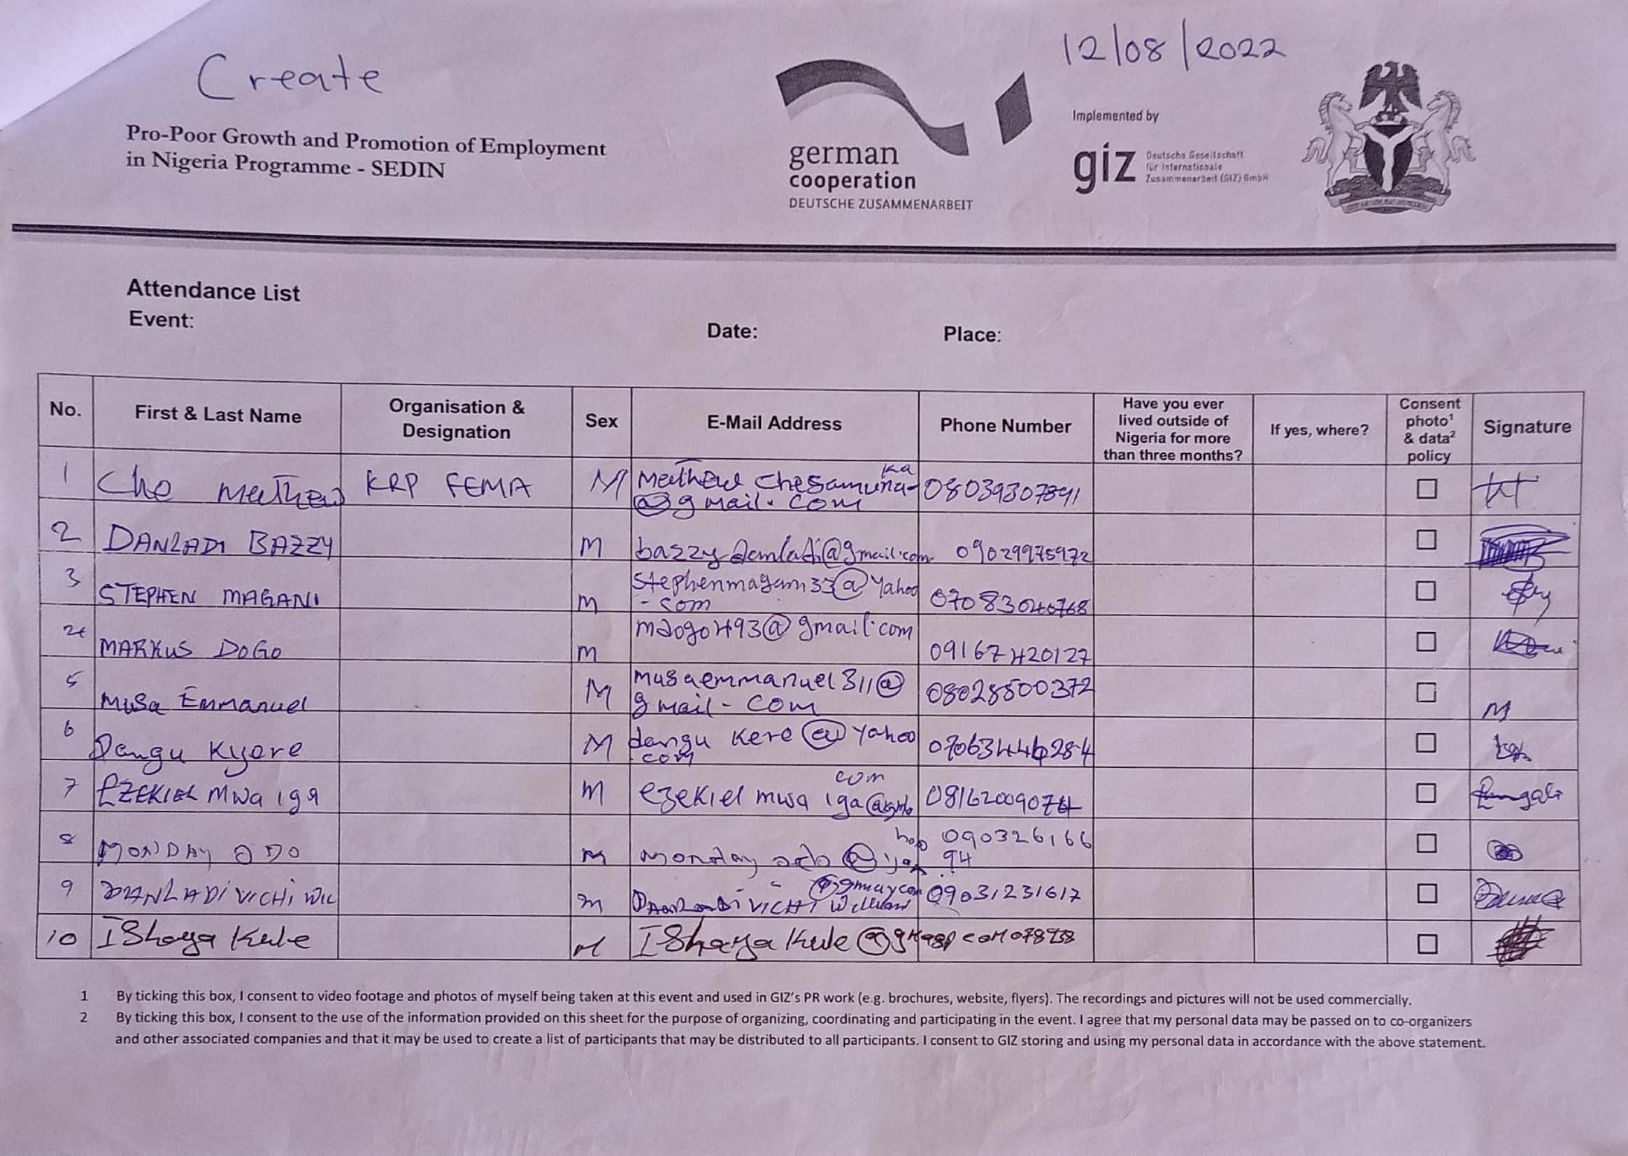 Create
12/08/2022
Pro-Poor Growth and Promotion of Employment
in Nigeria Programme - SEDIN
german
cooperation
DEUTSCHE ZUSAMMENARBEIT
Implemented by
giz
Deutsche Gesellschaft
für Internationale
Zusammenarbeit (GIZ) GmbH
Attendance List
Event:
Date:
Place:
No. First & Last Name Organisation & Designation Sex E-Mail Address Phone Number Have you ever lived outside of Nigeria for more than three months? If yes, where? Consent photo¹ & data² policy Signature
1 Cho KRP FEMA M @gmail.com 08039307891
2 DANLADI BAZZY M 09029975972
3 STEPHEN MAGANI M 07083040768
MARKUS DOGO M 09167420127
5 Musa Emmanuel M musaemmanuel311@ gmail-com 08028500372 M
6 Dangu Kyore M dangu kere @ yahoo com
7 EZEKIEL Mwa iga M ezekiel mwa iga com
8 MONDAY ADO M Monday 090326166 94
9 DANLADI VICHI WIL M 09031231617
10 IShaya Kule M IShaya Kule
1 By ticking this box, I consent to video footage and photos of myself being taken at this event and used in GIZ's PR work (e.g. brochures, website, flyers). The recordings and pictures will not be used commercially.
2 By ticking this box, I consent to the use of the information provided on this sheet for the purpose of organizing, coordinating and participating in the event. I agree that my personal data may be passed on to co-organizers
and other associated companies and that it may be used to create a list of participants that may be distributed to all participants. I consent to GIZ storing and using my personal data in accordance with the above statement.